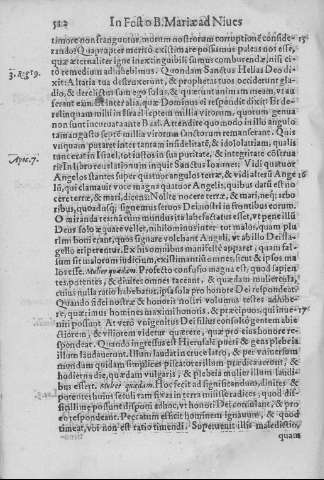 512 In Festo B. Mariæ ad Niues
timore non franguntur, morum nostrorum corruptionē conside-
rando? Quapropter meritò existimare possumus paleas nos esse,
quæ æternaliter igne inextinguibili sumus comburendæ, nisi ci-
tò remedium adhibemus. Quondam Sanctus Helias Deo di-
3. Reg 19.
xit: Altaria tua destruxerunt, Prophetas tuos occiderunt gla-
dio, & derelictus sum ego solus, & quærunt animam meam, vt au
ferant eam. Et inter alia, quæ Dominus ei respondit dixit: & de-
relinquam mihi in Israël septem millia virorum, quorum genua
non sunt incuruata ante Baal. Attendite quomodo in illo angulo
tam angusto septē millia virorum sanctorum remanserant. Quis
vnquam putaret inter tantam infidelitatē, & idololatriam, qualis
tunc erat in Israel, tot iustos in sua puritate, & integritate
Apoc. 7.
ri? In libro reuelationum inquit Sanctus Ioannes: Vidi quatuor
Angelos stantes super quatuor angulos terræ, & vidi alterū Ange
16
lū, qui clamauit voce magna quatuor Angelis, quibus datū est no
cere terræ, & mari, dicens: Nolite nocere terræ, & mari, neq; arbo
ribus, quoadusq; signemus seruos Dei nostri in frontibus eorum.
O miranda res, nā cum mundus ita labefactus esset, vt penè illū
Deus solo æquare vellet, nihilominus inter tot malos, quam plu
rimi boni erant, quos signare volebant Angeli, vt ab illo Dei fla-
gello eriperentur. Ex his omnibus manifestè apparet, quam fal-
sum sit malorum iudicium, existimantiū omnes, sicut & ipsos ma
los esse. Mulier quædam. Profectò confusio magna est, quod sapien
tes, potentes, & diuites omnes tacerent, & quædam muliercula,
cuius nulla ratio habebatur, ipsa sola pro honore Dei respondeat.
Quando fidei nostræ & honoris nostri volumus testes adhibe-
re, quærimus homines maximi honoris, & præcipuos, qui inue-
17
niri possunt. At verò vnigenitus Dei filius consultò gentem abie
ctiorem, & viliorem videtur quærere, quæ pro eius honore re-
spondeat. Quando ingressus est Hierusalē pueri & gens plebeia
illum laudauerunt. Illum laudat in cruce latro, & per vniuersum
mundum quidam simplices piscatores illum prædicauerunt, &
hodierna die, quædam vulgaris, & plebeia mulier illum laudi-
bus effert. Mulier quædam. Hoc fecit ad significandum, diuites &
potentes huius sæculi tam fixas in terra mitti se radices, quod dif-
ficillimè possunt disponi ad hoc, vt honori Dei consulant, & pro
eo respondeant. Peccatum efficit hominem ignauum, & quod
timeat, vbi non est ratio timendi. Superuenit illis maledictio,
quam